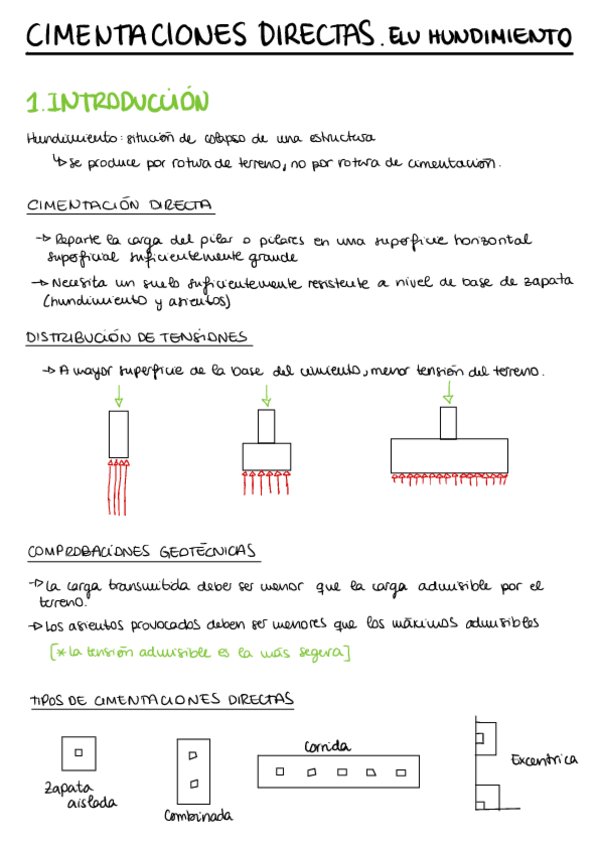 CIMENTACIONES DIRECTAS. ELU HUNDIMIENTO
1. INTRODUCCIÓN
Hundimiento: situción de colapso de una estructura
↳ Se produce por rotura de terreno, no por rotura de cimentación.
CIMENTACIÓN DIRECTA
→ Reparte la carga del pilar o pilares en una superficie horizontal
superficial suficientemente grande
→ Necesita un suelo suficientemente resistente a nivel de base de zapata
(hundimiento y asientos)
DISTRIBUCIÓN DE TENSIONES
→ A mayor superficie de la base del cimiento, menor tensión del terreno.
COMPROBACIONES GEOTÉCNICAS
→ La carga transmitida deber ser menor que la carga admisible por el
terreno.
→ Los asientos provocados deben ser menores que los máximos admisibles
[* La tensión admisible es la más segura]
TIPOS DE CIMENTACIONES DIRECTAS
Zapata
aislada
Combinada
Corrida
Excentrica